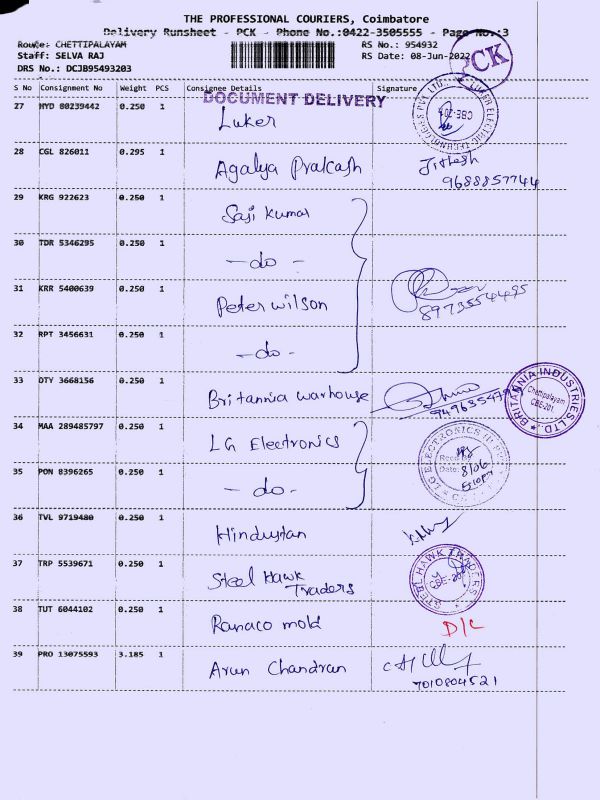 THE PROFESSIONAL COURIERS, Coimbatore
Delivery Runsheet - PCK - Phone No.:0422-3505555 - Page No.:3
Route: CHETTIPALAYAM RS No.: 954932
Staff: SELVA RAJ RS Date: 08-Jun-2022
DRS No.: DCJB95493203
CK
S No Consignment No Weight PCS Consignee Details Signature
DOCUMENT DELIVERY
27 HYD 80239442 0.250 1 Luker
28 CGL 826011 0.295 1 Agalya Prakash Jithesh
9688857744
29 KRG 922623 0.250 1 Saji Kumar
30 TDR 5346295 0.250 1 -do-
31 KRR 5400639 0.250 1 Peter Wilson 8973554495
32 RPT 3456631 0.250 1 -do-
33 DTY 3668156 0.250 1 Britannia warhouse
BRITANNIA INDUSTRIES LTD. Chettipalayam CBE-201
34 MAA 289485797 0.250 1 LG Electronics
LG ELECTRONICS
Date: 8/06
35 PON 8396265 0.250 1 -do-
36 TVL 9719480 0.250 1 Hindustan
37 TRP 5539671 0.250 1 Steel Hawk
Traders
STEEL HAWK TRADERS
38 TUT 6044102 0.250 1 Ranaco mold D/L
39 PRO 13075593 3.185 1 Arun Chandran
7010804521